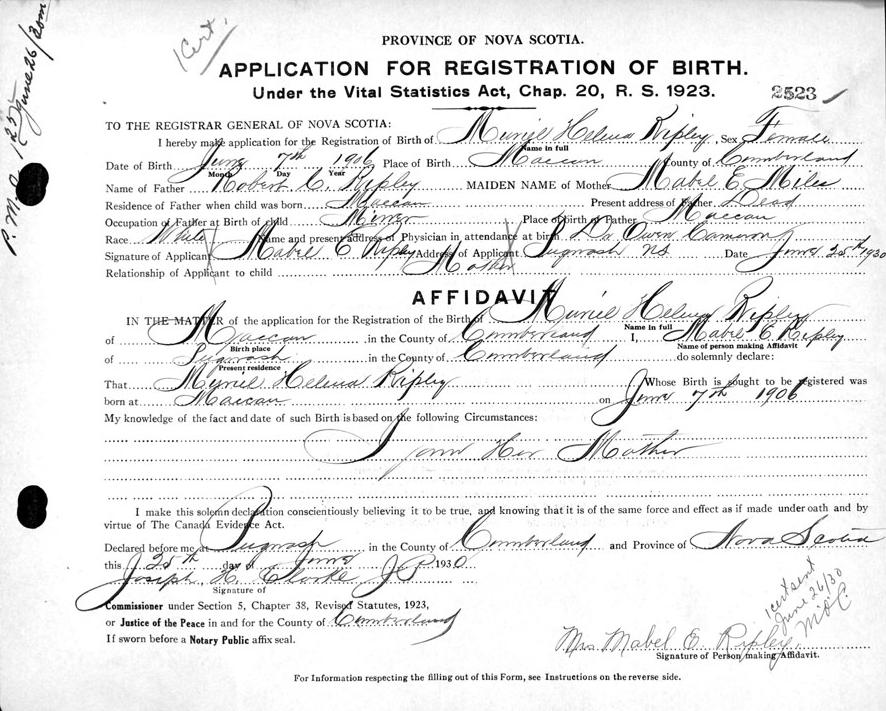 Cert.
PROVINCE OF NOVA SCOTIA.
APPLICATION FOR REGISTRATION OF BIRTH.
Under the Vital Statistics Act, Chap. 20, R. S. 1923.
2523
TO THE REGISTRAR GENERAL OF NOVA SCOTIA:
I hereby make application for the Registration of Birth of Muriel Helena Ripley, Sex Female
Name in full
Date of Birth June 7th 1906 Place of Birth Maccan County of Cumberland
Month Day Year
Name of Father Robert C. Ripley MAIDEN NAME of Mother Mabel E. Miles
Residence of Father when child was born Maccan Present address of Father Dead
Occupation of Father at Birth of child Miner Place of birth of Father Maccan
Race White Name and present address of Physician in attendance at birth Dr Owen Cameron
Signature of Applicant Mabel E Ripley Address of Applicant Pugwash NS Date June 25th 1930
Relationship of Applicant to child Mother
AFFIDAVIT
IN THE MATTER of the application for the Registration of the Birth of Muriel Helena Ripley
Name in full
of Maccan in the County of Cumberland I, Mabel E. Ripley
Birth place Name of person making Affidavit
of Pugwash in the County of Cumberland do solemnly declare:
Present residence
That Myriel Helena Ripley Whose Birth is sought to be registered was
born at Maccan on June 7th 1906
My knowledge of the fact and date of such Birth is based on the following Circumstances:
I am Her Mother
I make this solemn declaration conscientiously believing it to be true, and knowing that it is of the same force and effect as if made under oath and by
virtue of The Canada Evidence Act.
Declared before me at Pugwash in the County of Cumberland and Province of Nova Scotia
this 25th day of June 1930
Joseph H. Clarke J P
Signature of
Commissioner under Section 5, Chapter 38, Revised Statutes, 1923,
or Justice of the Peace in and for the County of Cumberland
If sworn before a Notary Public affix seal.
Cert sent
June 26/30
Mrs Mabel E. Ripley
Signature of Person making Affidavit.
For Information respecting the filling out of this Form, see Instructions on the reverse side.